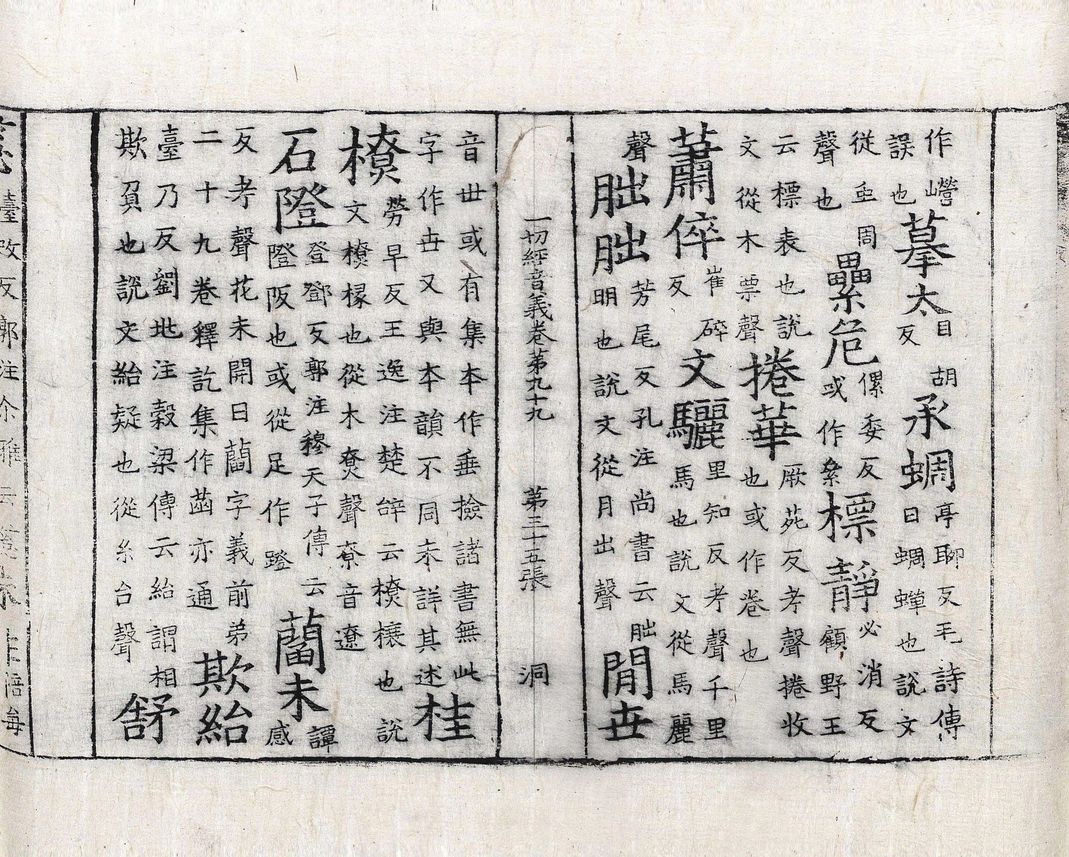 作巆誤也摹太目胡反承蜩亭聊反毛詩傳曰蜩蟬也說文
從虫周聲也纍危㒍委反或作絫標靜必消反顧野王
云標表也說文從木票聲捲華厥苑反考聲捲收也或作卷也
蕭倅崔碎反文驪里知反考聲千里馬也說文從馬麗
聲朏朏芳尾反孔注尚書云朏明也說文從月出聲閒世
一切經音義卷第九十九 第三十五張 洞
音世或有集本作垂撿諸書無此字作世又與本韻不同未詳其述桂
橑勞早反王逸注楚辝云橑榱也說文橑椽也從木尞聲尞音遼
石隥登鄧反郭注穆天子傳云隥阪也或從足作蹬藺未譚感
反考聲花未開曰藺字義前弟二十九卷釋訖集作菡亦通欺紿
臺乃反劉兆注穀梁傳云紿謂相欺負也說文紿疑也從糸台聲舒